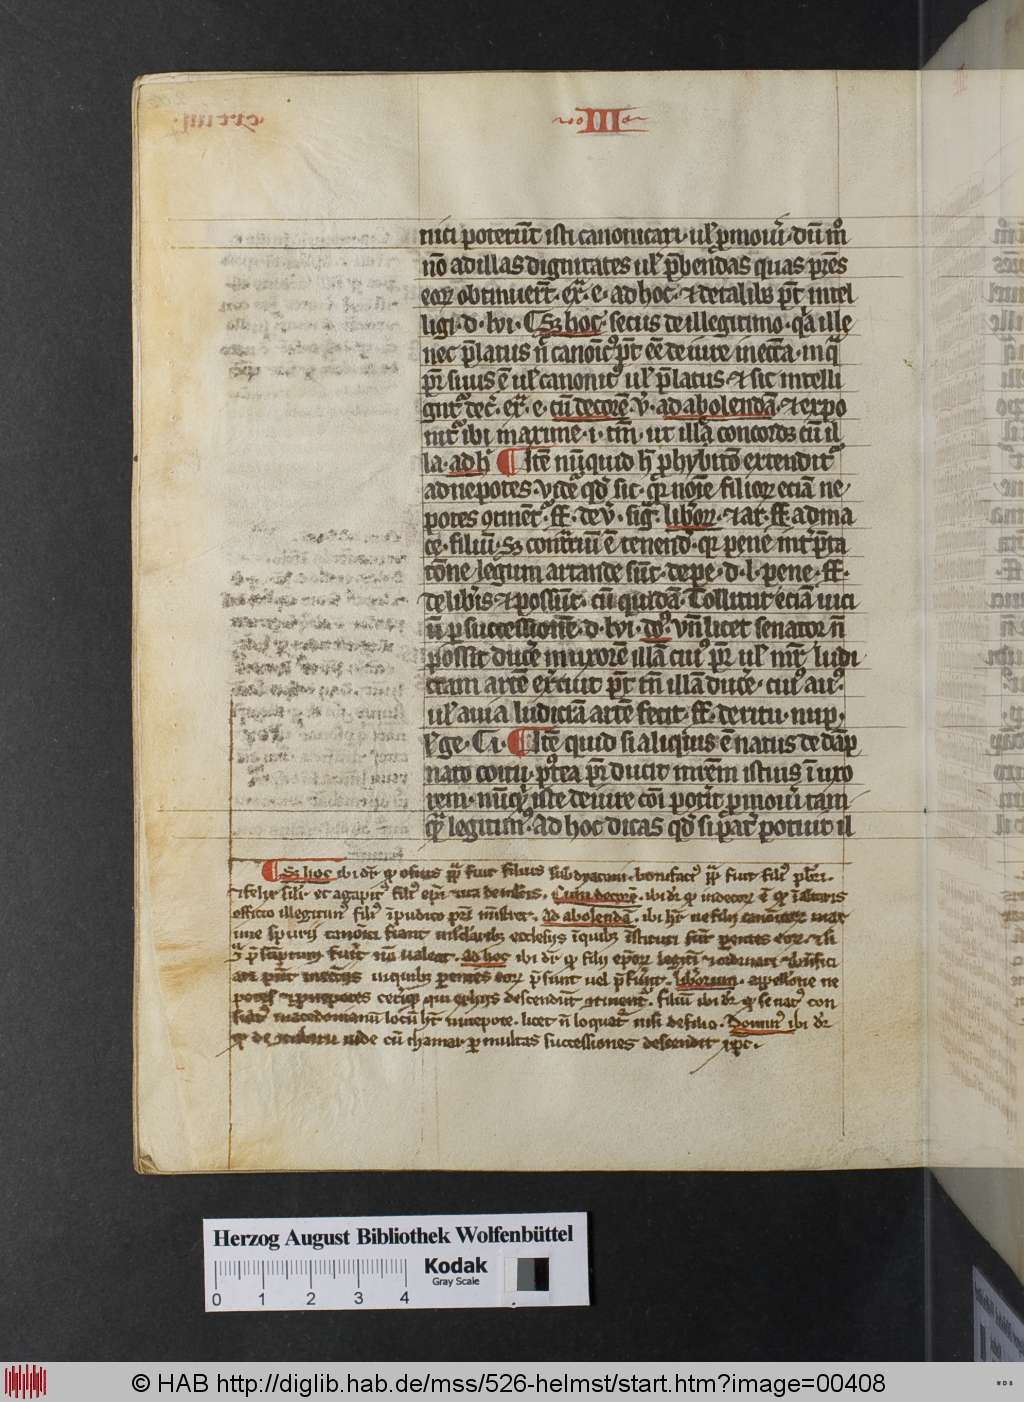 III
nici poterūt isti canonicari · ul' ꝓmoui · dū m̊
nō ad illas dignitates ul' p̄bendas quas prēs
eoꝝ obtinuer̄t · ex̄ · e · ad hoc · ⁊ de talib; pt̄ intel
ligi · d · lvi · ¶ S; hoc secus de illegitimo · q̄a ille
nec p̄latus n̄ canoic᷒ pt̄ eē de iure in ecc̄a · in q̄
pr̄ suus ē ul' canonic᷒ ul' p̄latus · ⁊ sic intelli
git᷒ dec̄ · ex̄ · e · cū decorē · v̄ · ad abolendā · ⁊ expo
nit᷒ ibi maxime · i · tm̄ · ut illa concordet cū il
la · ad h̄ ¶ Itē nūquid h̄ ꝓhybitō extendit᷒
ad nepotes · vidēt̄ qd̄ sic · qr̄ noīe filioꝝ eciā ne
potes ꝯtinēt᷒ · ff · de v̄ · sig · liberoꝝ · ⁊ at · ff · ad ma
ce · filiū · s; contrariū ē tenend᷒ · qr̄ pene int̄p̄ta
tōne legum artande sūt · de pe · d · l · pene · ff ·
de lib̄is · ⁊ possūt · cū quidā · Tollitur eciā uici
ū ꝑ successionē · d · lvi · do᷒ · vn̄ licet senator n̄
possit duce᷒ in uxorē illā cui᷒ pr̄ ul' mr̄ ludi
cram artē ex̄cuit pt̄ tn̄ illā duce᷒ · cui᷒ au᷒
ul' auia ludicrā artē fecit · ff · de ritu · nup ·
l'ge · C i · ¶ Itē quid si aliq̄s ē natus de dāp
nato coitu · p᷒tea pr̄ ducit mrēm istius ī uxo
rem · nūqd̄ iste de iure cōi pot̄it ꝓmoui tam
q̄ legitim᷒ · Ad hoc dicas qd̄ si pat̄ potuit il
¶ S; hoc ibi dr̄ qd̄ osius pp̄ fuit filius subdyaconi · bonifaci᷒ pp̄ fuit fili᷒ pb̄ri ·
⁊ felix sil'r et agapit᷒ fili᷒ ep̄i · Cum decorē · ibi dr̄ qd̄ indecoꝝ ē qd̄ ī altaris
officio illegitimū fili᷒ īpudico pr̄i mīstret · Ad abolendā · ibi hr̄ ne filij canonicoꝝ max
ime spurij canonici fiant in sel'aribȝ ecclesijs ī quibȝ īstituti sūt parentes eoꝝ · ⁊ si
ꝯ p̄scriptum fuerit nō ualeat · ad hoc ibi dr̄ qd̄ filij ep̄oꝝ legiti ⁊ ordinari ⁊ bn̄efici
ari pn̄t in ecc̄ijs in quibȝ parentes eoꝝ p̄sunt uel p̄fuer̄t · liberoꝝ · appell'one ne
potes ⁊ ꝓnepotes ceteriq̄ qui ex hijs descendūt ꝯtinent᷒ · filiū ibi dr̄ qd̄ senat᷒ con
sult᷒ macedonianū locū ht̄ in nepote · licet n̄ loquat᷒ nisi de filio · Domin᷒ ibi dr̄
qd̄ de tribu iude cū thamar ꝑ multas successiones descendit xp̄c ·
Herzog August Bibliothek Wolfenbüttel
Kodak
Gray Scale
0 1 2 3 4
© HAB http://diglib.hab.de/mss/526-helmst/start.htm?image=00408